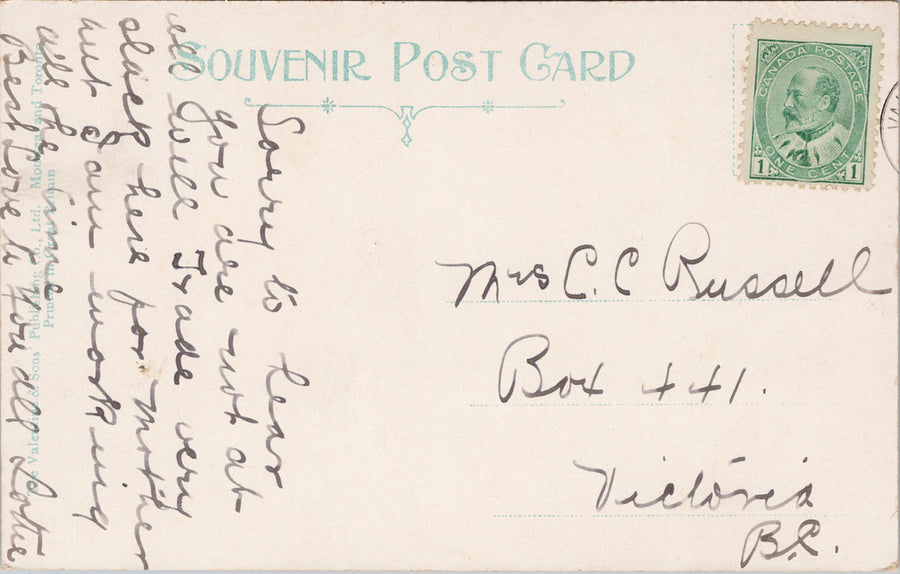 SOUVENIR POST CARD
CANADA POSTAGE
1 ONE CENT 1
VA
Sorry to hear
you are not at
all well Trade very
slack here for Mother
but I am working
all the time
Best Love to you all Lottie
Mrs C. C Russell
Box 441.
Victoria
B.C.
The Valentine & Sons' Publishing Co., Ltd. Montreal and Toronto
Printed in Great Britain